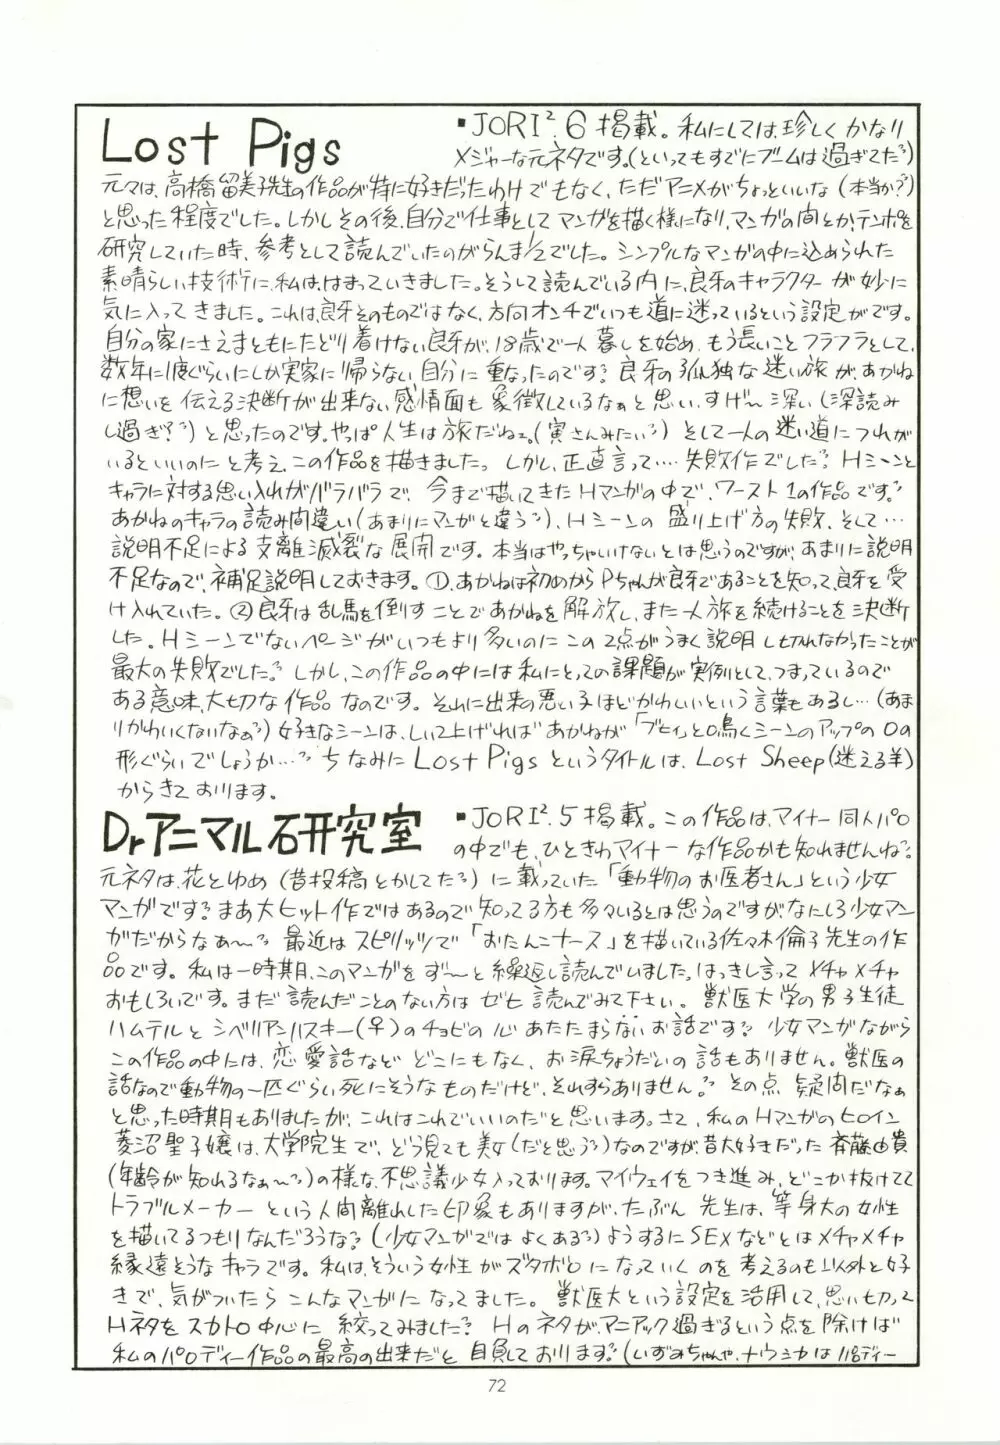 Lost Pigs
■JORI².6 掲載。私にしては、珍しくかなり
メジャーな元ネタです。(といってもすでにブームは過ぎてた?)
元々は、高橋留美子先生の作品が特に好きだったわけでもなく、ただアニメがちょっといいな(本当か?)
と思った程度でした。しかしその後、自分で仕事としてマンガを描く様になり、マンガの間とか、テンポを
研究していた時、参考として読んでいたのがらんま1/2でした。シンプルなマンガの中に込められた
素晴らしい技術に、私は、はまっていきました。そうして読んでいる内に、良牙のキャラクターが妙に
気に入ってきました。これは、良牙そのものではなく、方向オンチでいつも道に迷っているという設定がです。
自分の家にさえまともにたどり着けない良牙が、18歳で一人暮しを始め、もう長いことフラフラとして、
数年に1度ぐらいにしか実家に帰らない自分に重なったのです? 良牙の孤独な迷い旅が、あかね
に想いを伝える決断が出来ない感情面も象徴しているなぁと思い、すげ〜深い(深読み
し過ぎ??)と思ったのです。やっぱ人生は旅だねェ。(寅さんみたい?) そして一人の迷い道につれが
いるといいのにと考え、この作品を描きました。しかし、正直言って…‥失敗作でした? Hシーンと
キャラに対する思い入れがバラバラで、今まで描いてきたHマンガの中で、ワースト1の作品です?
あかねのキャラの読み間違い(あまりにマンガと違う?)、Hシーンの盛り上げ方の失敗、そして…
説明不足による支離滅裂な展開です。本当はやっちゃいけないとは思うのですが、あまりに説明
不足なので、補足説明しておきます。①、あかねは初めからPちゃんが良牙であることを知って、良牙を受
け入れていた。②良牙は乱馬を倒すことであかねを解放し、また一人旅を続けることを決断
した。Hシーンでないページがいつもより多いのにこの2点がうまく説明し切れなかったことが
最大の失敗でした? しかし、この作品の中には私にとっての課題が実例として、つまっているので
ある意味、大切な作品なのです。それに出来の悪い子ほどかわいいという言葉もあるし…(あま
りかわいくないなぁ?)好きなシーンは、しいて上げればあかねが「ブヒィ」と鳴くシーンのアップの口の
形ぐらいでしょうか…? ちなみにLost Pigsというタイトルは、Lost Sheep(迷える羊)
からきております。
Drアニマル研究室
■JORI².5掲載。この作品は、マイナー同人パロ
の中でも、ひときわマイナーな作品かも知れませんね?
元ネタは、花とゆめ(昔投稿とかしてた?)に載っていた「動物のお医者さん」という少女
マンガです? まあ大ヒット作ではあるので知ってる方も多々いるとは思うのですが、なにしろ少女マン
ガだからなぁ〜? 最近はスピリッツで「おたんこナース」を描いている佐々木倫子先生の作
品です。私は一時期、このマンガをず〜と繰返し読んでいました。はっきし言ってメチャメチャ
おもしろいです。まだ読んだことのない方はゼヒ読んでみて下さい。獣医大学の男子生徒
ハムテルとシベリアンハスキー(♀)のチョビの心あたたまらないお話です? 少女マンガながら
この作品の中には、恋愛話などどこにもなく、お涙ちょうだいの話もありません。獣医の
話なので動物の一匹ぐらい死にそうなものだけど、それすらありません? その点疑問だなぁ
と思った時期もありましたが、これはこれでいいのだと思います。さて、私のHマンガのヒロイン
菱沼聖子嬢は、大学院生で、どう見ても美女(だと思う?)なのですが、昔大好きだった斉藤由貴
(年齢が知れるなぁ〜?)の様な、不思議少女入っております。マイウェイをつき進み、どこか抜けてて
トラブルメーカーという人間離れした印象もありますが、たぶん先生は、等身大の女性
を描いてるつもりなんだろうな? (少女マンガではよくある?)ようするにSEXなどとはメチャメチャ
縁遠そうなキャラです。私は、そういう女性がズタボロになっていくのを考えるのも以外と好
きで、気がついたらこんなマンガになってました。獣医大という設定を活用して、思い切って
Hネタをスカトロ中心に絞ってみました? Hのネタが、マニアック過ぎるという点を除けば
私のパロディー作品の最高の出来だと自負しております? (いずみちゃんや、ナウシカはパロディー
72